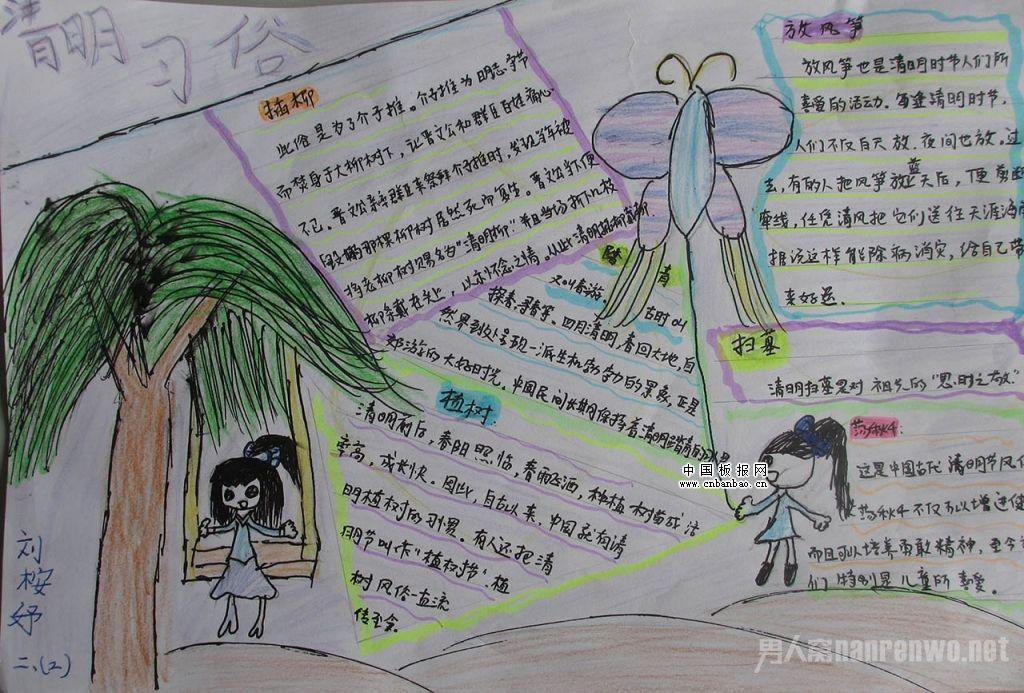 清明习俗
插柳
此俗是为了介子推。介子推为明志守节
而焚身于大柳树下，让晋文公和群臣百姓痛心
不已。晋文公亲率群臣来祭拜介子推时，发现当年被
毁的那棵柳树居然死而复生。晋文公当便
将老柳树赐名为"清明柳"并且当场折下几枝
柳条戴在头上，以示怀念之情，从此清明插柳
踏青
又叫春游。古时叫
探春、寻春等。四月清明，春回大地，自
然界到处呈现一派生机勃勃的景象，正是
郊游的大好时光。中国民间长期保持着清明踏青的习惯
植树
清明前后，春阳照临，春雨飞洒，种植树苗成活
率高，成长快。因此，自古以来，中国就有清
明植树的习惯。有人还把清
明节叫作"植树节"。植
树风俗一直流
传至今。
放风筝
放风筝也是清明时节人们所
喜爱的活动。每逢清明时节，
人们不仅白天放，夜间也放。过
去，有的人把风筝放蓝天后，便剪断
牵线，任凭清风把它们送往天涯海
据说这样能除病消灾，给自己带
来好运。
扫墓
清明扫墓是对祖先的"思时之敬"
荡秋千：
这是中国古代清明节风俗
荡秋千不仅可以增进健
而且可以培养勇敢精神，至今
们特别是儿童所喜爱。
中国板报网
www.cnbanbao.cn
刘桉妤
二、(2)
男人窝nanrenwo.net